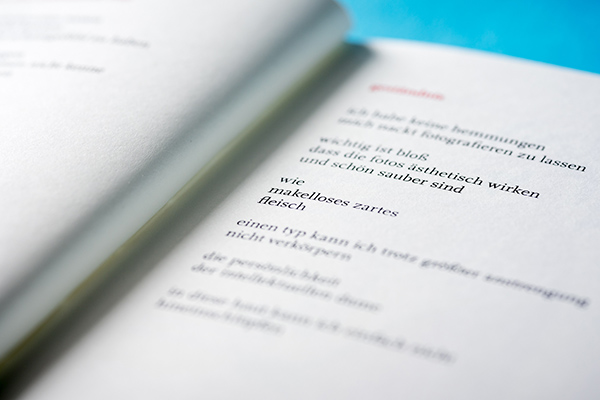 ich habe keine hemmungen
mich nackt fotografieren zu lassen
wichtig ist bloß
dass die fotos ästhetisch wirken
und schön sauber sind
wie
makelloses zartes
fleisch
einen typ kann ich trotz großer anstrengung
nicht verkörpern
die persönlichkeit
der intellektuellen dame
in diese haut kann ich einfach nicht
hineinschlüpfen